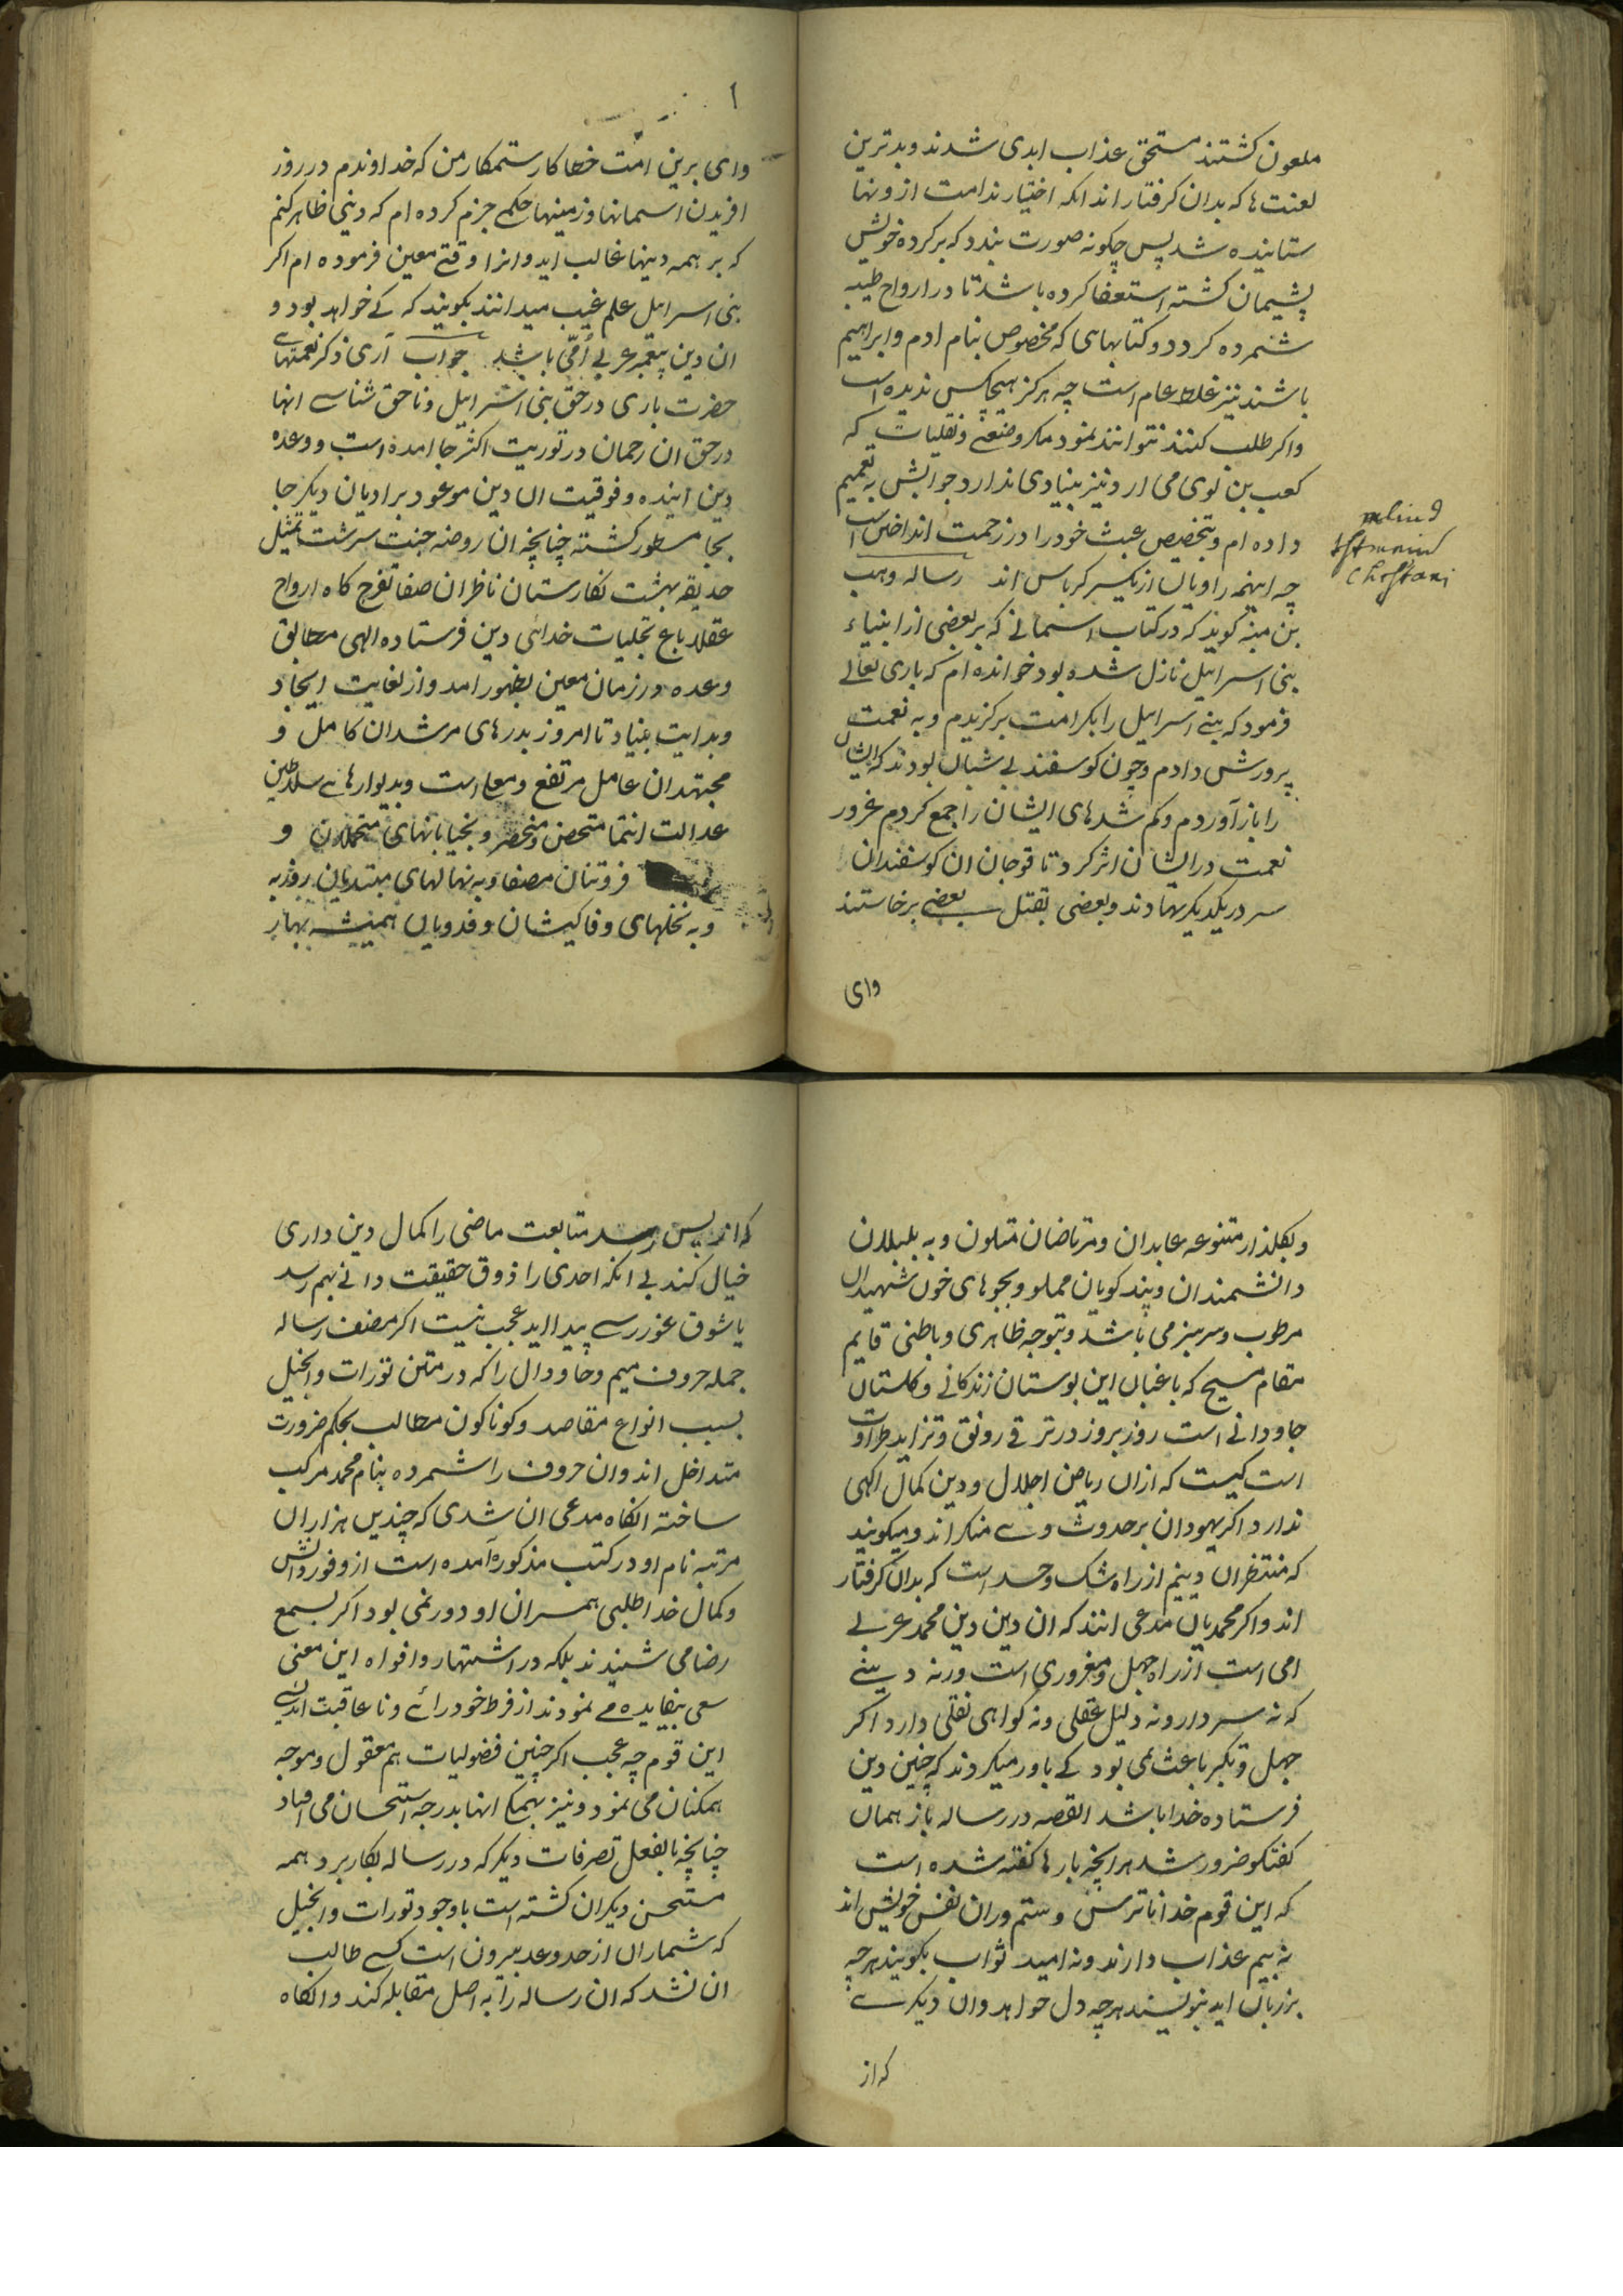 ملعون کشتند مستحق عذاب ابدی شدند و بدترین
لعنت ها که بدان کرفتار اند انکه اختیار ندامت از ونها
ستاینده شد پس چکونه صورت بندد که بر کرده خویش
پشیمان کشته استعفا کرده باشد تا در ارواح طیبه
شمرده کردد و کتابهای که مخصوص بنام ادم و ابراهیم
باشند نیز غلط عام است چه هرکز هیچکس ندیده است
واکر طلب کنند نتوانند نمود مکر وضیعی و نقلیات که
کعب بن لوی می ارد نیز بنیادی ندارد جوابش به تعمیم
داده ام و بتخصیص عبث خود را در زحمت انداختن است
چه اینهمه راویان از یکسر کرباس اند رساله وهب
بن منبه کوید که در کتاب اسمانی که بر بعضی از انبیاء
بنی اسرایل نازل شده بود خوانده ام که باری تعالی
فرمود که بنی اسرایل را بکرامت برکزیدم و به نعمت
پرورش دادم و چون کوسفند بی شبان بودند که ایشان
را باز آوردم و کم شدهای ایشان را جمع کردم غرور
نعمت در ایشان اثر کرد تا قوجان ان کوسفندان
سر در یکدیکر نهادند و بعضی بقتل بعضی برخاستند
وای
۱
وای برین امت خطا کار ستمکار من که خداوندم در روز
افریدن اسمانها و زمینها حکمی جزم کرده ام که دینی ظاهر کنم
که بر همه دینها غالب اید و انرا وقتی معین فرموده ام اکر
بنی اسرایل علم غیب میدانند بکویند که کی خواهد بود و
ان دین پیغمبر عربی اُمّی باشد جواب آری ذکر نعمتهای
حضرت باری در حق بنی اسرایل و ناحق شناسی انها
در حق ان رحمان در توریت اکثر جا امده است و وعده
دین اینده و فوقیت ان دین موعود بر ادیان دیکر جا
بجا مسطور کشته چنانچه ان روضه جنت سرشت تمثیل
حدیقه بهشت نکارستان ناظران صفا تفرج کاه ارواح
عقلا باغ تجلیات خدائی دین فرستاده الهی مطابق
وعده در زمان معین بظهور امد و از لغایت ایجاد
و بدایت بنیاد تا امروز بدرهای مرشدان کامل و
مجتهدان عامل مرتفع و معلا است و بدیوارهای سلاطین
عدالت انتما متحصن و منحصر و بخیابانهای متحملان و
فروتنان مصفا و به نهالهای مبتدیان روزبه
و به نخلهای وفا کیشان و فدویان همیشه بهار
و بکلذار متنوعه عابدان و مرتاضان متلون و به بلبلان
دانشمندان و پند کویان مملو و بجوهای خون شهیدان
مرطوب و سرسبز می باشد و بتوجه ظاهری و باطنی قایم
مقام مسیح که باغبان این بوستان زندکانی و کلستان
جاودانی است روز بروز در ترقی رونق و تزاید طراوت
است کیست که ازان ریاض اجلال و دین کمال اکهی
ندارد اکر یهودان بر حدوث وی منکر اند و میکویند
که منتظران دینیم از راه شک و حسد است که بدان کرفتار
اند و اکر محمدیان مدعی انند که ان دین دین محمد عربی
امی است از راه جهل و مغروری است ورنه دینی
که نه سر دارد نه دلیل عقلی و نه کواهی نقلی دارد اکر
جهل و تکبر باعث نمی بود کی باور میکردند که چنین دین
فرستاده خدا باشد القصه در رساله باز همان
کفتکو ضرور شد هر انچه بارها کفته شده است
که این قوم خدا ناترس و ستم وران نفس خویش اند
نه بیم عذاب دارند و نه امید ثواب بکویند هر چه
بر زبان اید بنویسند هر چه دل خواهد وان دیکری
که از
که از پس رسد متابعت ماضی را کمال دین داری
خیال کند بی انکه احدی را ذوق حقیقت دانی بهم رسد
یا شوق غوررسی پیدا اید عجب نیست اکر مصنف رساله
جمله حروف میم و حا و دال را که در متن تورات و انجیل
بسبب انواع مقاصد و کوناکون مطالب بحکم ضرورت
متداخل اند وان حروف را شمرده بنام محمد مرکب
ساخته انکاه مدعی ان شدی که چندین هزاران
مرتبه نام او در کتب مذکوره آمده است از وفور دانش
و کمال خدا طلبی همسران او دور نمی بود اکر بسمع
رضا می شنیدند بلکه در اشتهار و افواه این معنی
سعی بیفایده می نمودند از فرط خود رائی و نا عاقبت اندیشی
این قوم چه عجب اکر چنین فضولیات هم معقول و موجه
همکنان می نمود و نیز بهمکی انها بدرجه استحسان می افتاد
چنانچه بالفعل تصرفات دیکر که در رساله بکار برد همه
مستحسن دیکران کشته است با وجود تورات و انجیل
که شماران از حد و عد بیرون است کسی طالب
ان نشد که ان رساله را به اصل مقابله کند و انکاه